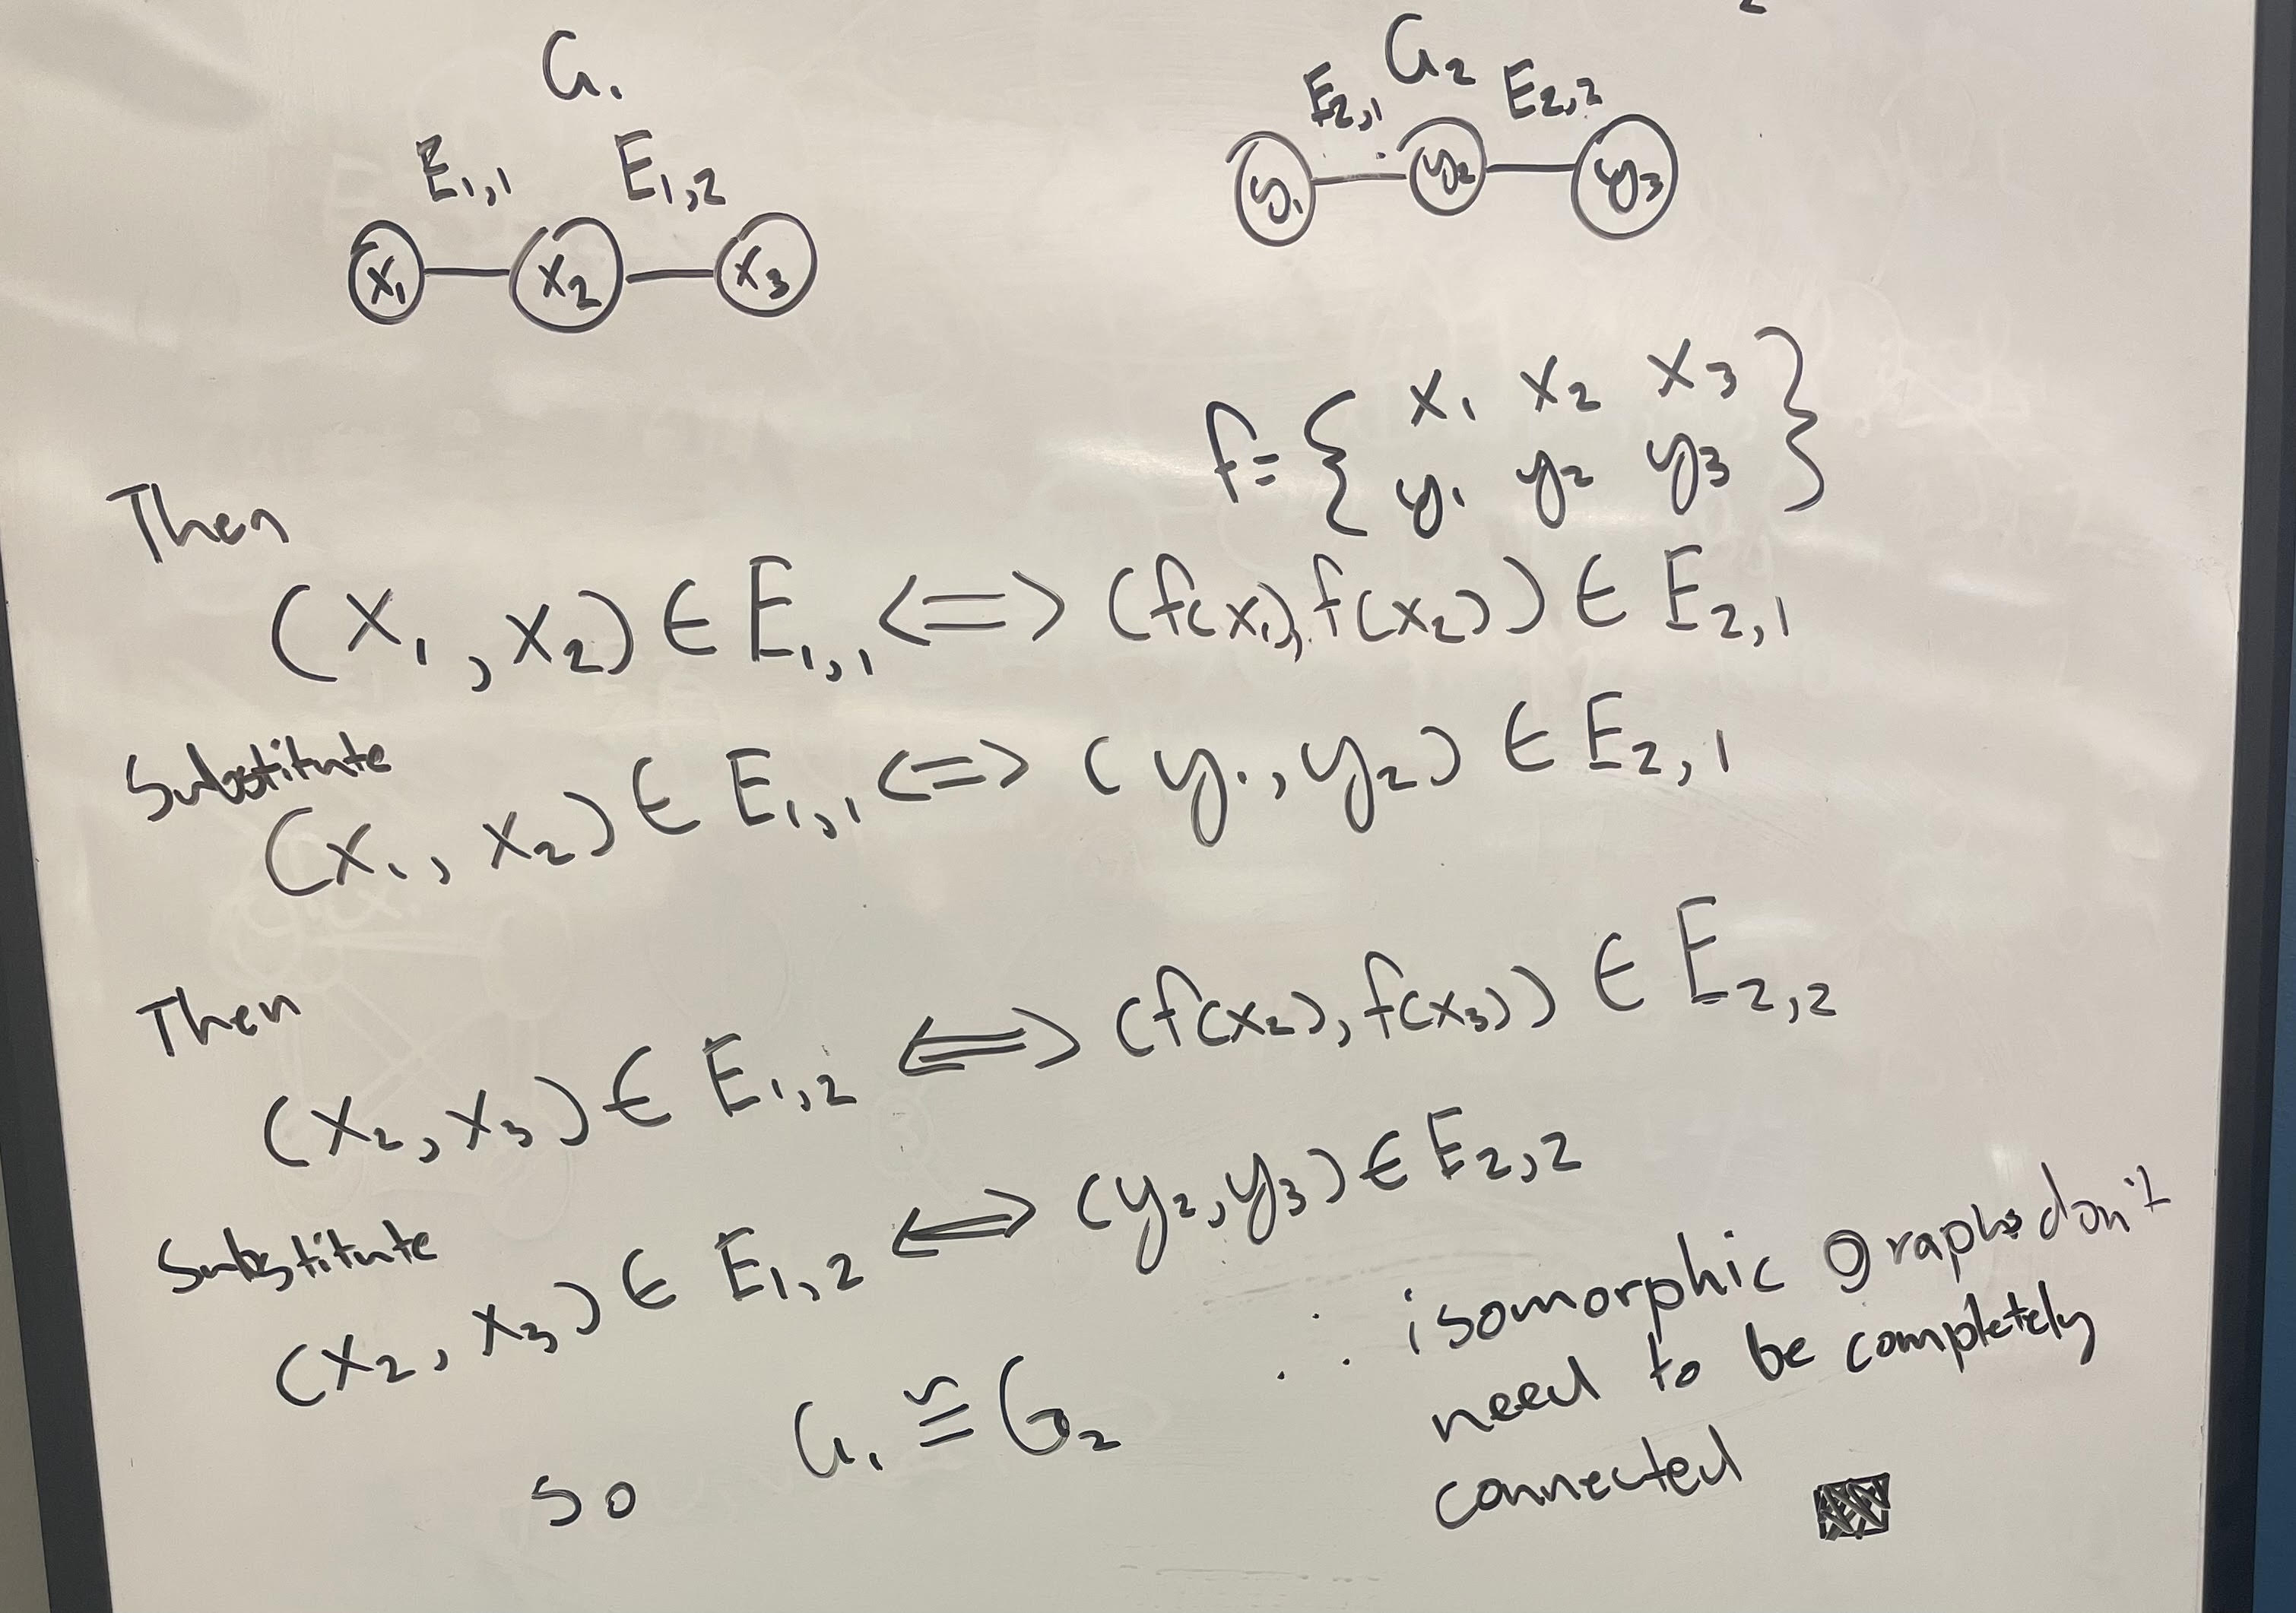 G₁
G₂
E₁,₁ E₁,₂
E₂,₁ E₂,₂
x₁ x₂ x₃
y₁ y₂ y₃
f = { x₁ x₂ x₃
y₁ y₂ y₃ }
Then
(x₁, x₂) ∈ E₁,₁ <=> (f(x₁), f(x₂)) ∈ E₂,₁
Substitute
(x₁, x₂) ∈ E₁,₁ <=> (y₁, y₂) ∈ E₂,₁
Then
(x₂, x₃) ∈ E₁,₂ <=> (f(x₂), f(x₃)) ∈ E₂,₂
Substitute
(x₂, x₃) ∈ E₁,₂ <=> (y₂, y₃) ∈ E₂,₂
so G₁ ≅ G₂
∴ isomorphic graphs don't
need to be completely
connected